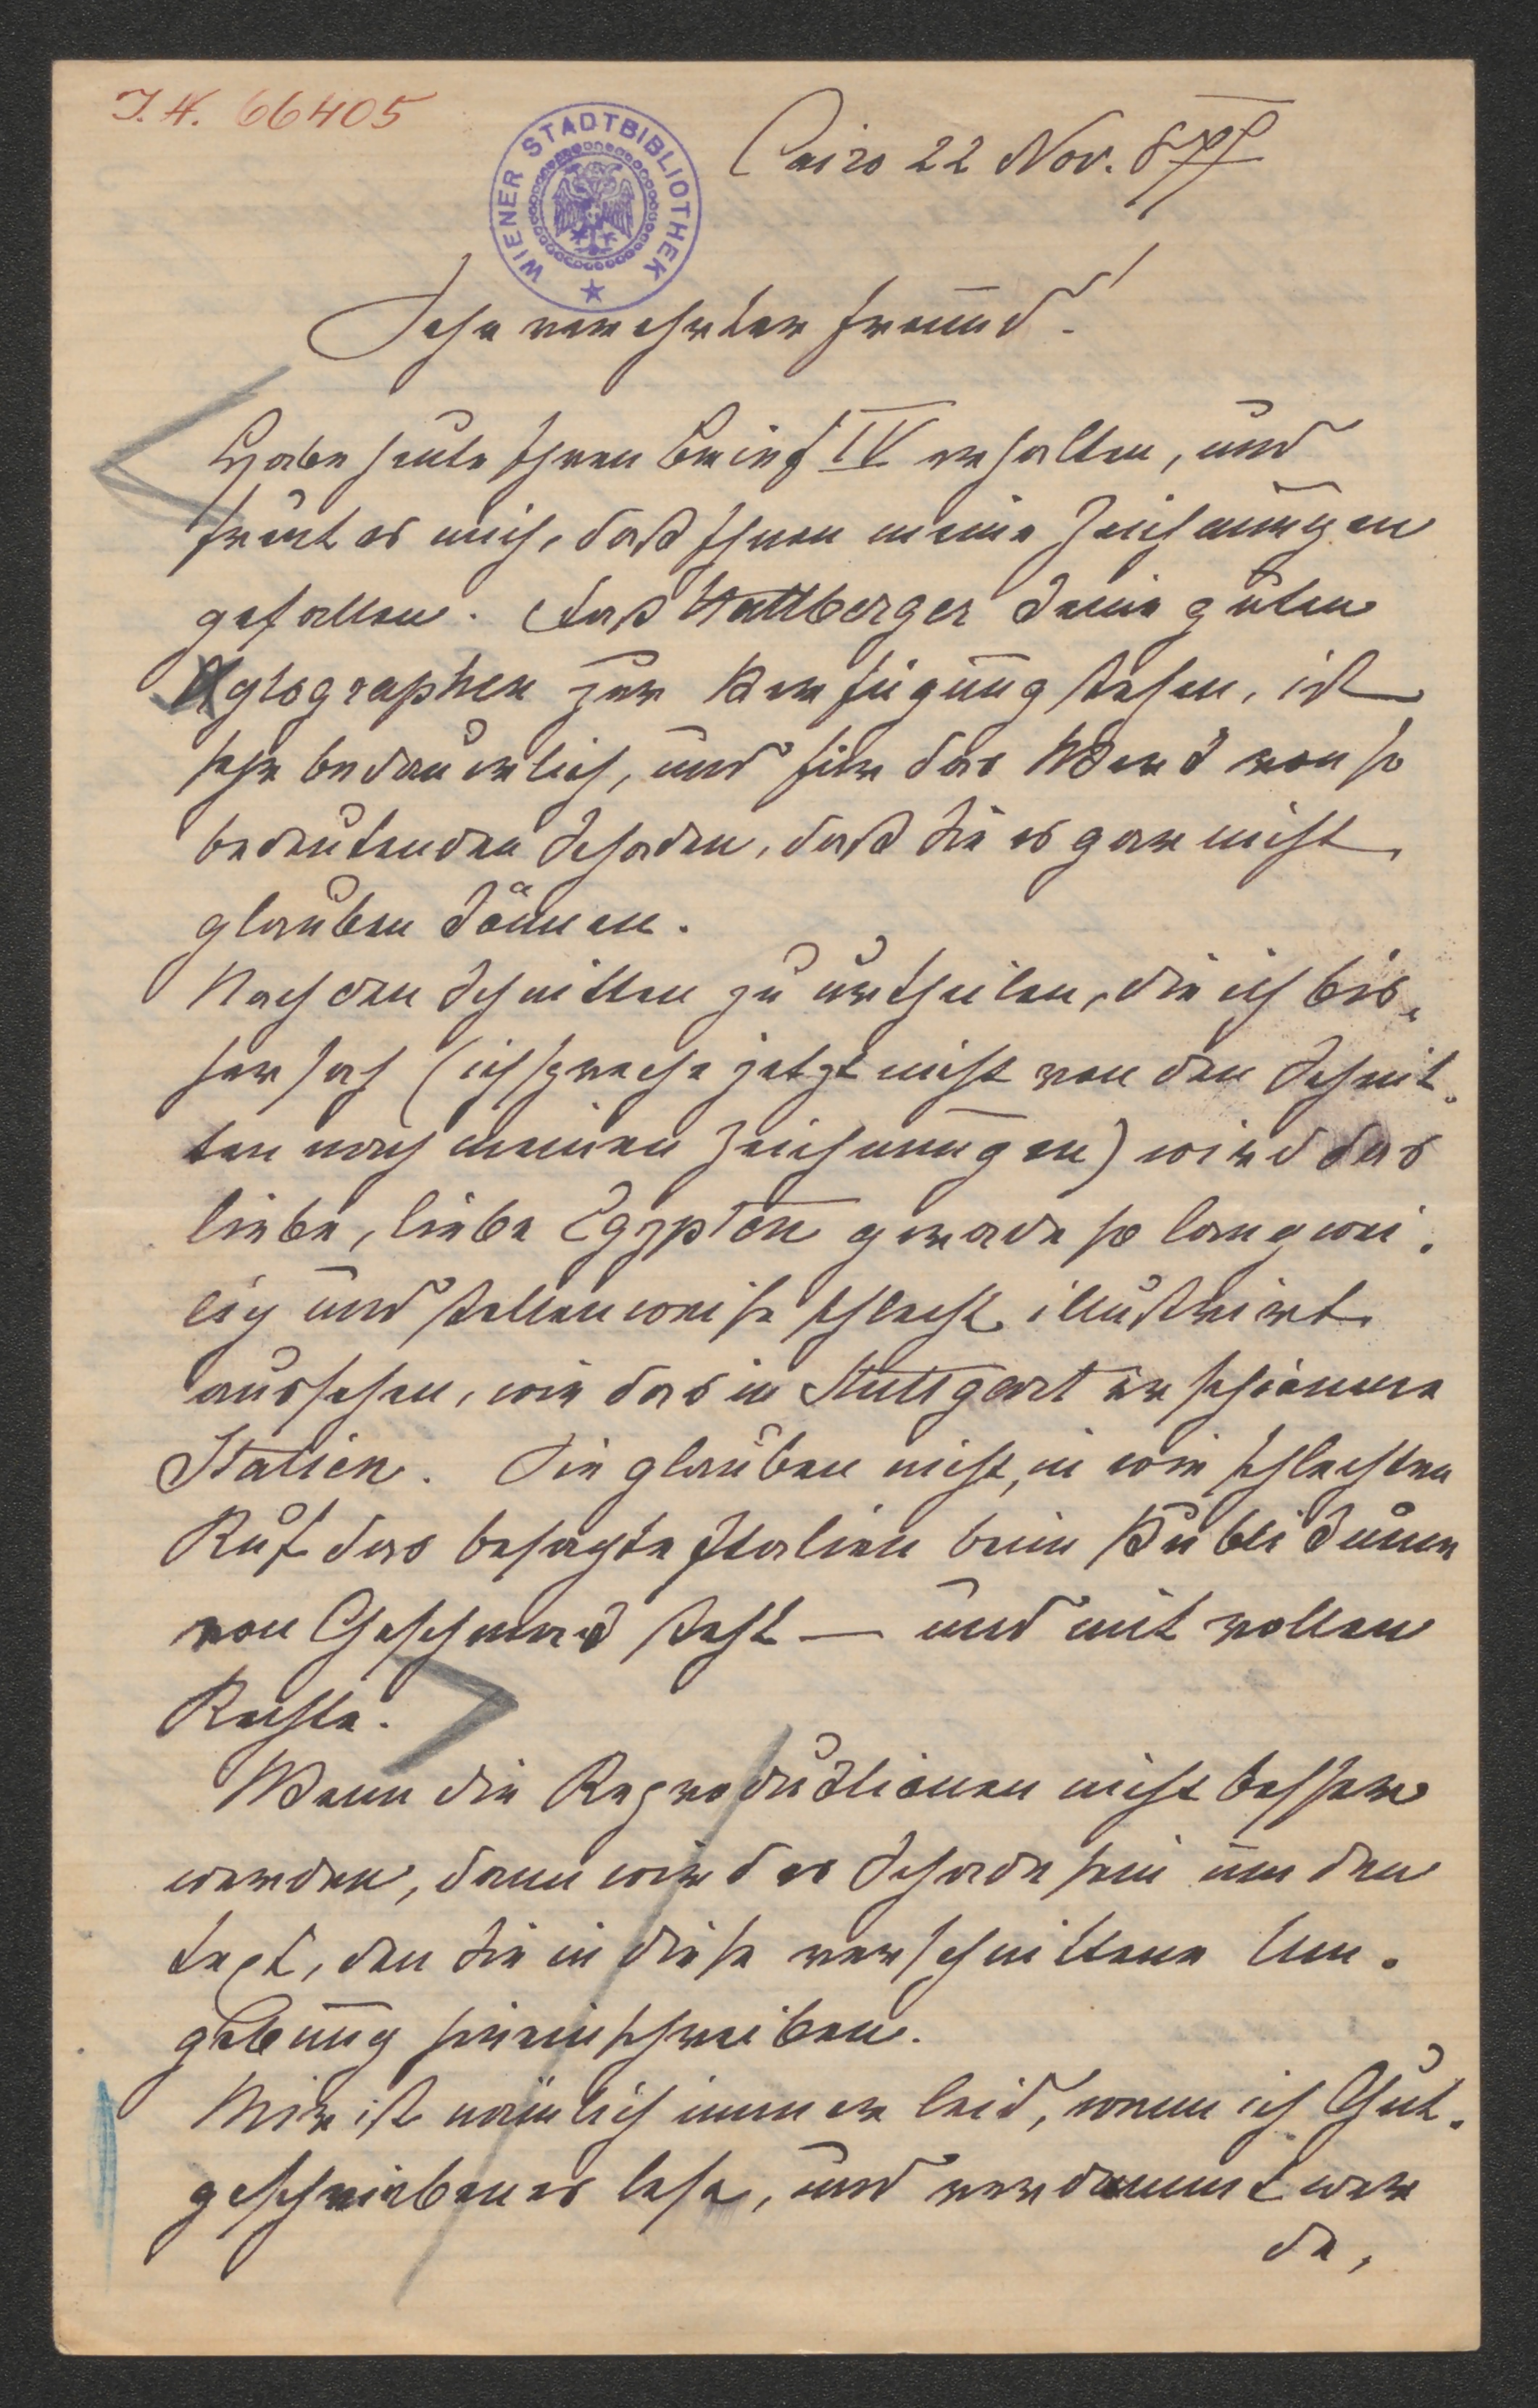 J. N. 66405
WIENER STADTBIBLIOTHEK
Cairo 22 Nov. 877
Sehr verehrter Freund!
Habe heute Ihren Brief IV erhalten, und
freut es mich, daß Ihnen meine Zeichnungen
gefallen. Daß Hallberger keine guten
Xylographen zur Verfügung stehen, ist
sehr bedauerlich, und für das Werk von so
bedeutenden Schaden, daß Sie es gar nicht
glauben können.
Nach den Schnitten zu urtheilen, die ich bis-
her sah (ich spreche jetzt nicht von den Schnit-
ten nach meinen Zeichnungen) wird das
liebe, liebe Egypten gerade so langwei-
lig und stellenweise schlecht illustrirt
aussehen, wie das in Stuttgart erschienene
Italien. Sie glauben nicht, in wie schlechten
Ruf das besagte Italien beim Publikum
von Geschmack steht — und mit vollem
Rechte.
Wenn die Reproduktionen nicht besser
werden, dann wird es Schade sein um den
Text, den Sie in diese verschnittene Um-
gebung hineinschreiben.
Mir ist nämlich immer leid, wenn ich Gut-
geschriebenes lese, und verdammt wer
de,